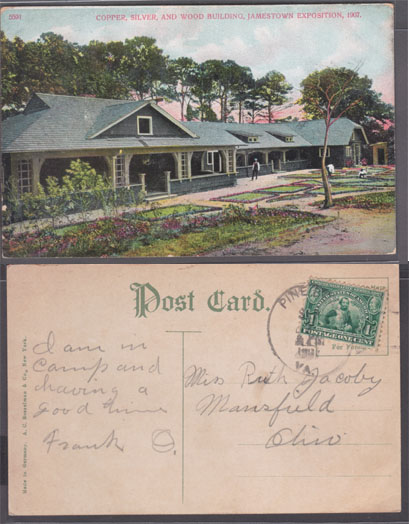 3591 COPPER, SILVER, AND WOOD BUILDING, JAMESTOWN EXPOSITION, 1907.
Post Card.
I am in
Camp and
having a
good time
Frank O.
Miss Ruth Jacoby
Mansfield
Ohio
PINE
VA.
1 POSTAGE ONE CENT 1
Made in Germany. A. C. Bosselman & Co., New York.